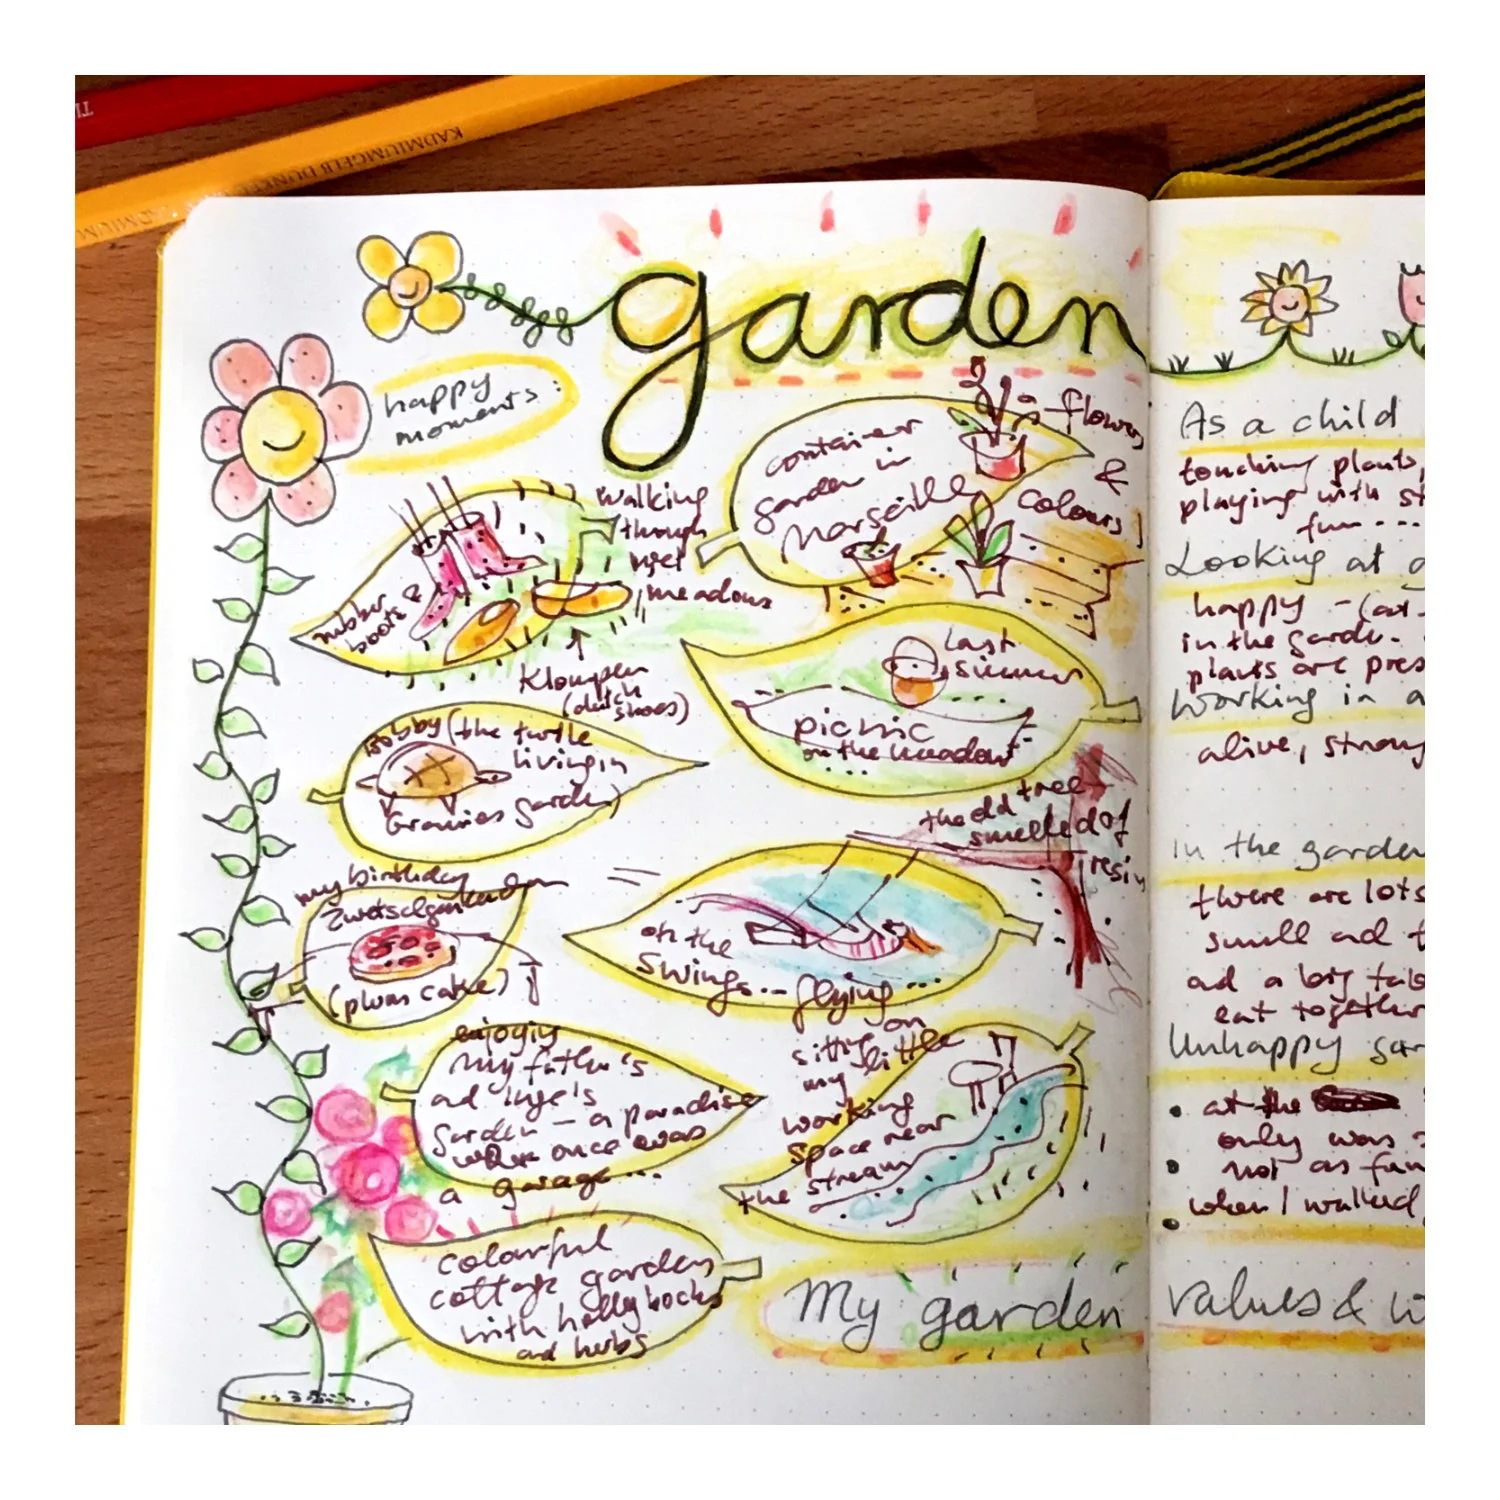 KADMIUMGELB DUNKEL
KADMIUM
garden
happy
moments:
container
garden in
Marseille
flowers
&
colours
walking
through
wet
meadows
rubber
boots &
Klompen
(dutch
shoes)
last
summer
picnic
on the meadow
Bobby (the turtle
living in
Grannies garden)
the old tree
smelled of
resin
my birthday
(plum cake)
on the
swings... flying...
enjoying
my father's
and Inge's
garden - a paradise
once was
a garage...
sitting on
my little
working
space near
the stream
colourful
cottage garden
with hollyhocks
and herbs
My garden values &
As a child
touching plants,
playing with
fun ...
Looking at
happy -
in the garden.
plants are
Working in a
alive, strong
in the garden
there are lots
small and
and a big
eat together
Unhappy
at the
only was
not as fun
when I walked